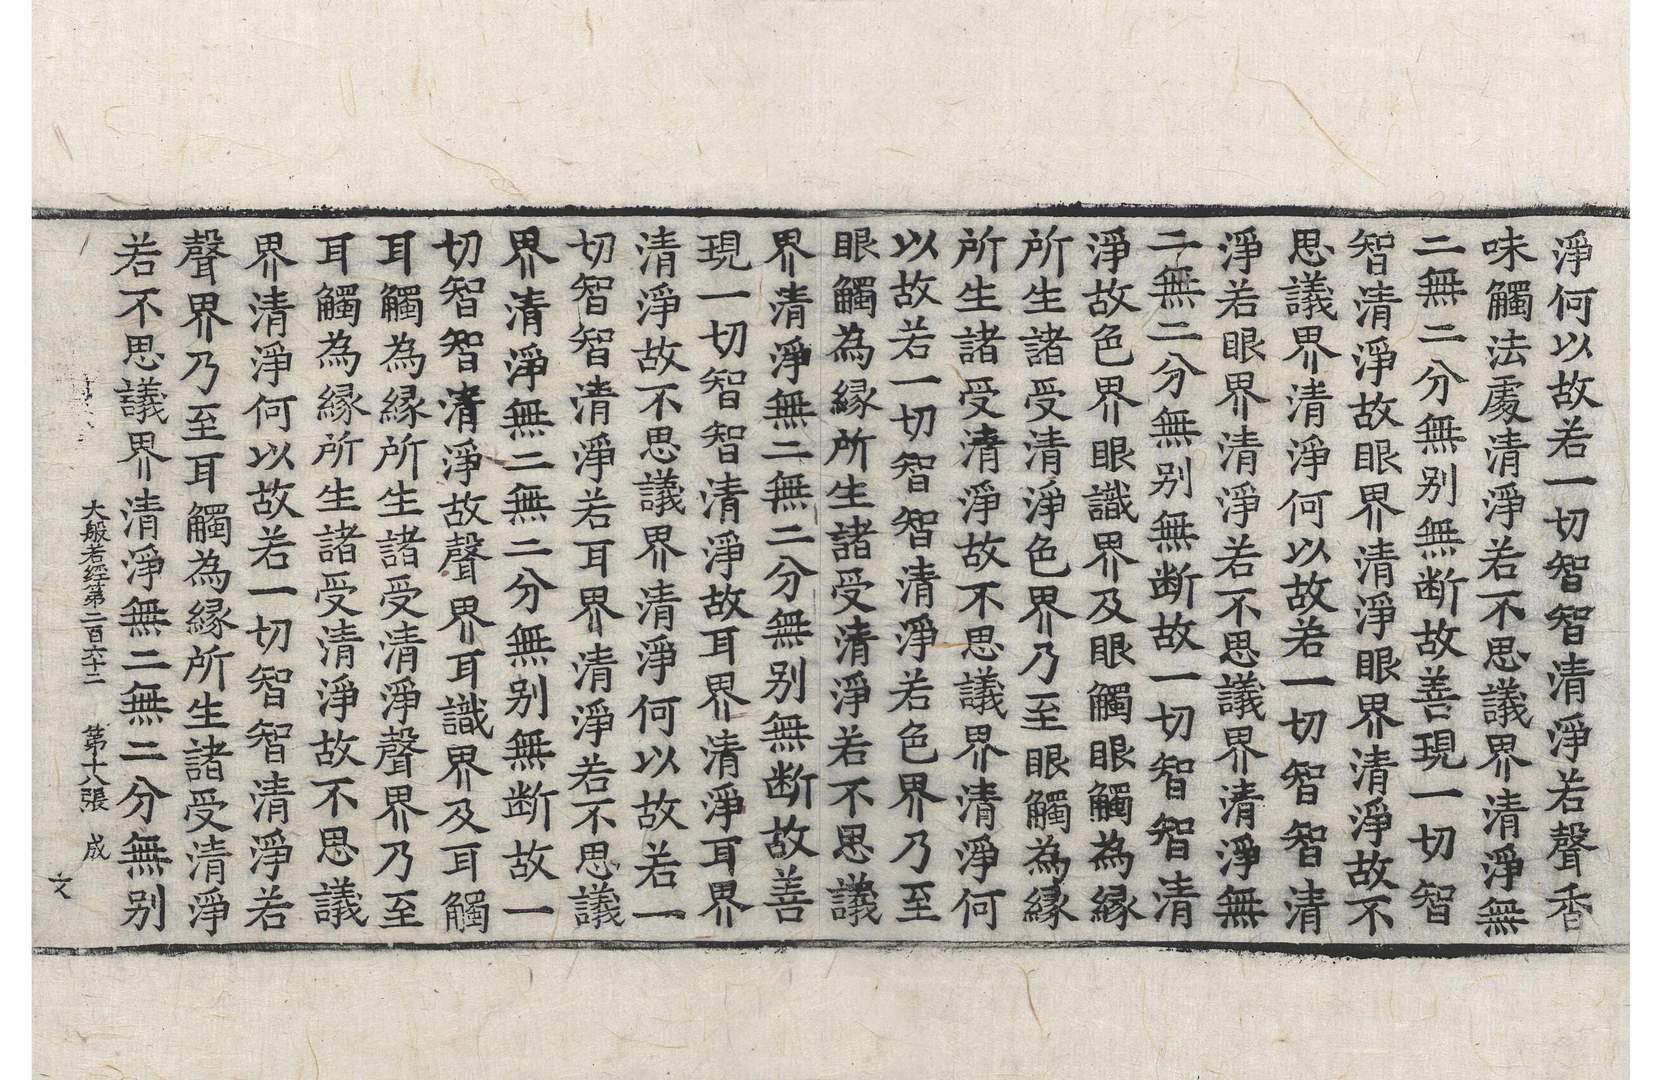 淨何以故若一切智智清淨若聲香
味觸法處清淨若不思議界清淨無
二無二分無别無断故善現一切智
智清淨故眼界清淨眼界清淨故不
思議界清淨何以故若一切智智清
淨若眼界清淨若不思議界清淨無
二無二分無别無断故一切智智清
淨故色界眼識界及眼觸眼觸為縁
所生諸受清淨色界乃至眼觸為縁
所生諸受清淨故不思議界清淨何
以故若一切智智清淨若色界乃至
眼觸為縁所生諸受清淨若不思議
界清淨無二無二分無别無断故善
現一切智智清淨故耳界清淨耳界
清淨故不思議界清淨何以故若一
切智智清淨若耳界清淨若不思議
界清淨無二無二分無别無断故一
切智智清淨故聲界耳識界及耳觸
耳觸為縁所生諸受清淨聲界乃至
耳觸為縁所生諸受清淨故不思議
界清淨何以故若一切智智清淨若
聲界乃至耳觸為縁所生諸受清淨
若不思議界清淨無二無二分無别
大般若經第二百六十二 第十八張 成